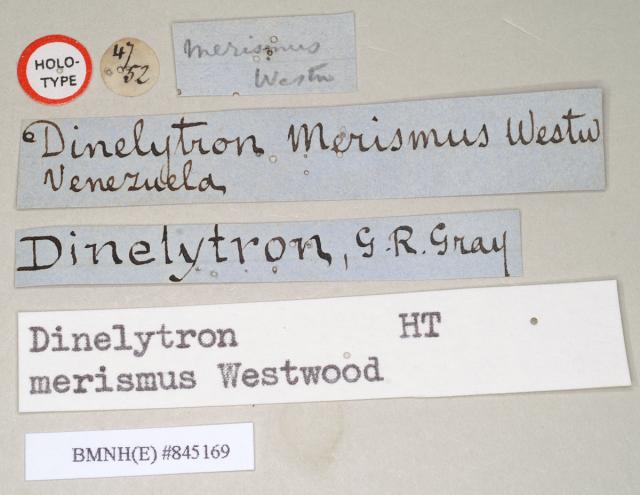 HOLO-
TYPE
47
52
merismus
Westw
Dinelytron Merismus Westw
Venezuela
Dinelytron, G. R. Gray
Dinelytron HT
merismus Westwood
BMNH(E) #845169